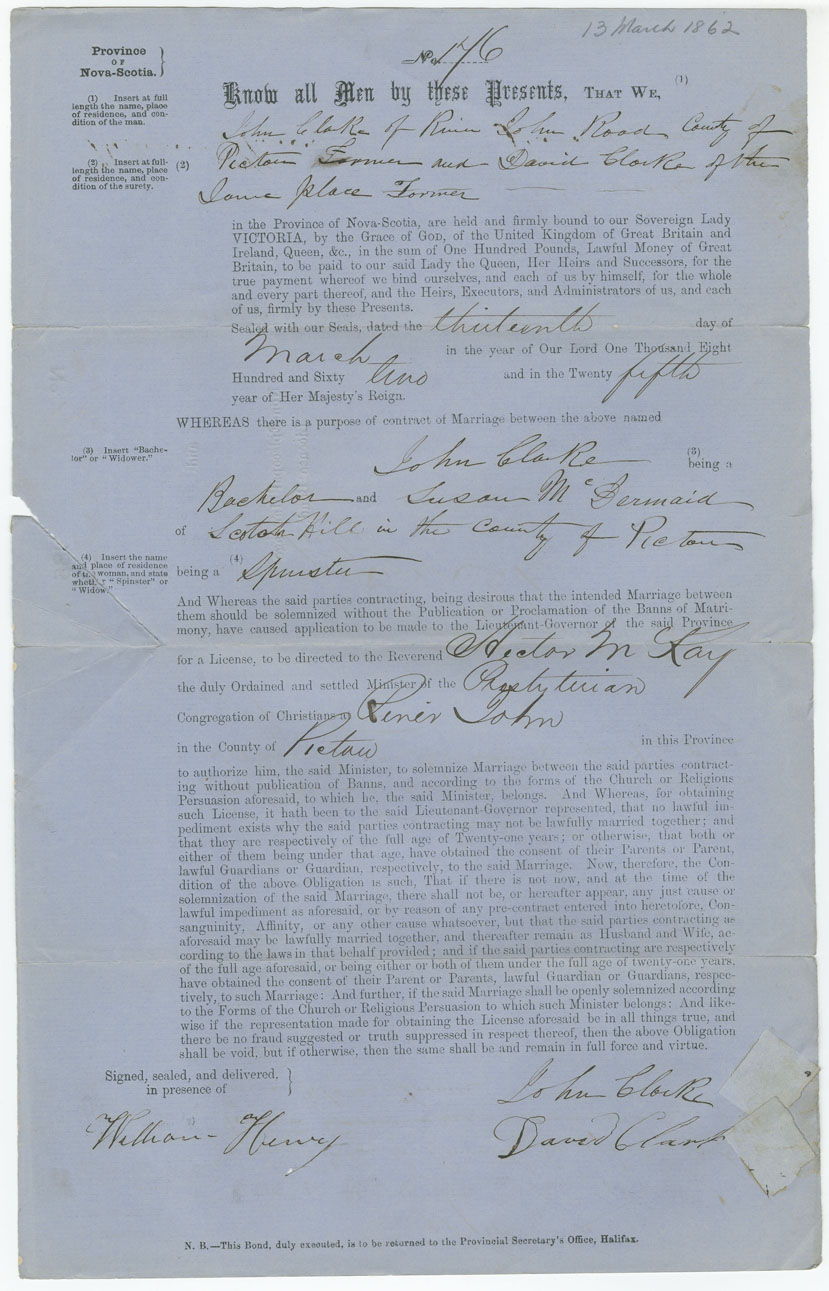 13 March 1862
Province
OF
Nova-Scotia.
No. 176
Know all Men by these Presents, THAT WE, (1)
(1) Insert at full
length the name, place
of residence, and con-
dition of the man.
John Clarke of River John Road County of
(2) Insert at full-
length the name, place
of residence, and con-
dition of the surety.
(2) Pictou Farmer and David Clarke of the
Same place Farmer
in the Province of Nova-Scotia, are held and firmly bound to our Sovereign Lady
VICTORIA, by the Grace of GOD, of the United Kingdom of Great Britain and
Ireland, Queen, &c., in the sum of One Hundred Pounds, Lawful Money of Great
Britain, to be paid to our said Lady the Queen, Her Heirs and Successors, for the
true payment whereof we bind ourselves, and each of us by himself, for the whole
and every part thereof, and the Heirs, Executors, and Administrators of us, and each
of us, firmly by these Presents.
Sealed with our Seals, dated the thirteenth day of
March in the year of Our Lord One Thousand Eight
Hundred and Sixty two and in the Twenty fifth
year of Her Majesty's Reign.
WHEREAS there is a purpose of contract of Marriage between the above named
(3) Insert "Bache-
lor" or "Widower."
John Clarke (3) being a
Bachelor and Susan McDermaid
of Scotch Hill in the County of Pictou
(4) Insert the name
and place of residence
of the woman, and state
whether "Spinster" or
"Widow."
being a (4) Spinster
And Whereas the said parties contracting, being desirous that the intended Marriage between
them should be solemnized without the Publication or Proclamation of the Banns of Matri-
mony, have caused application to be made to the Lieutenant-Governor of the said Province
for a License, to be directed to the Reverend Hector McKay
the duly Ordained and settled Minister of the Presbyterian
Congregation of Christians at River John
in the County of Pictou in this Province
to authorize him, the said Minister, to solemnize Marriage between the said parties contract-
ing without publication of Banns, and according to the forms of the Church or Religious
Persuasion aforesaid, to which he, the said Minister, belongs. And Whereas, for obtaining
such License, it hath been to the said Lieutenant-Governor represented, that no lawful im-
pediment exists why the said parties contracting may not be lawfully married together; and
that they are respectively of the full age of Twenty-one years; or otherwise, that both or
either of them being under that age, have obtained the consent of their Parents or Parent,
lawful Guardians or Guardian, respectively, to the said Marriage. Now, therefore, the Con-
dition of the above Obligation is such, That if there is not now, and at the time of the
solemnization of the said Marriage, there shall not be, or hereafter appear, any just cause or
lawful impediment as aforesaid, or by reason of any pre-contract entered into heretofore, Con-
sanguinity, Affinity, or any other cause whatsoever, but that the said parties contracting as
aforesaid may be lawfully married together, and thereafter remain as Husband and Wife, ac-
cording to the laws in that behalf provided; and if the said parties contracting are respectively
of the full age aforesaid, or being either or both of them under the full age of twenty-one years,
have obtained the consent of their Parent or Parents, lawful Guardian or Guardians, respec-
tively, to such Marriage: And further, if the said Marriage shall be openly solemnized according
to the Forms of the Church or Religious Persuasion to which such Minister belongs: And like-
wise if the representation made for obtaining the License aforesaid be in all things true, and
there be no fraud suggested or truth suppressed in respect thereof, then the above Obligation
shall be void, but if otherwise, then the same shall be and remain in full force and virtue.
Signed, sealed, and delivered,
in presence of
John Clarke
William Henry
David Clark
N. B.—This Bond, duly executed, is to be returned to the Provincial Secretary's Office, Halifax.